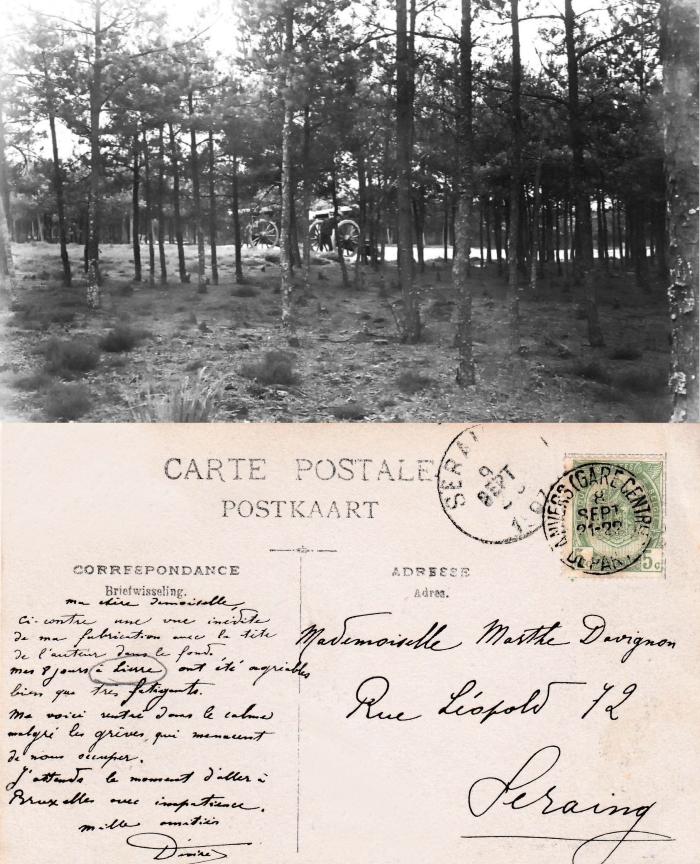 CARTE POSTALE
POSTKAART
SERAI
9
SEPT
ANVERS (GARE CENTRE
8
SEPT
21-22
DEPART
5c
CORRESPONDANCE
Briefwisseling.
ADRESSE
Adres.
ma chère demoiselle,
Ci-contre une vue inédite
de ma fabrication avec la tête
de l'auteur dans le fond.
mes 8 jours à Lierre ont été agréables
bien que très fatigants.
Me voici rentré dans le calme
malgré les grèves, qui menacent
de nous occuper.
J'attends le moment d'aller à
Bruxelles avec impatience.
mille amitiés
Désiré
Mademoiselle Marthe Davignon
Rue Léopold 72
Seraing